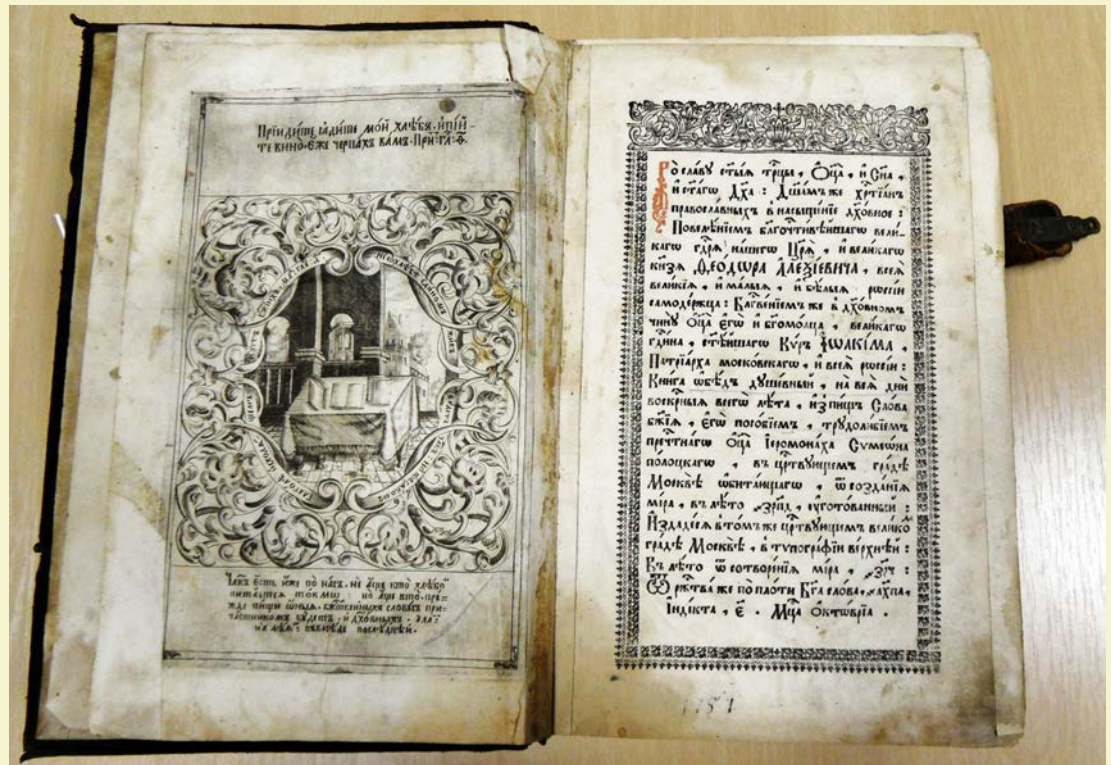 Прїиди́те ꙗ҆ди́те мо́й хлѣ́бъ. и҆пїй-
те вино̀ е҆́же черпа́хъ ва́мъ. При: гл҃: ѳ҃.
Члк҃ъ є҆́сть и҆́же по на́съ. не а҆́ще кто̀ хлѣ́бо
пита́етсѧ то́кмѡ: но а҆́ще кто̀. пре-
жде пи́щи ѡ҆́ныѧ. бжⷭ҇твенныхъ слове́съ при-
ча́стникомъ бу́детъ. и҆ дх҃о́вныхъ.
Во сла́ву ст҃ы́ѧ трⷪ҇цы, Ѻ҆ц҃а̀, и҆ Сн҃а,
и҆ ст҃а́гѡ Дх҃а: Дꙋша́мъ же хрⷭ҇тїа́нъ
правосла́вныхъ в насыще́нїе дх҃о́вное:
Повелѣ́нїемъ блг҃очⷭ҇ти́вѣйшагѡ вели-
кагѡ гдⷭ҇рѧ на́шегѡ Цр҃ѧ̀, и҆ вели́кагѡ
кнѧ́зѧ Ѳео́дѡра А҆леѯі́евича, всеѧ̀
вели́кїѧ, и҆ ма́лыѧ, и҆ бѣ́лыѧ рѡссі́и
самоде́ржца: Блгⷭ҇ве́нїемъ же в дх҃о́вномъ
чи́нꙋ Ѻ҆ц҃а̀ е҆гѡ̀ и҆ бг҃омо́лца, вели́кагѡ
гдⷭ҇и́на, ст҃ѣ́йшагѡ Кѵ́ръ І҆ѡаки́ма,
Патрїа́рха моско́вскагѡ, и҆ всеѧ̀ рѡссі́и:
Кни́га ѡ҆бѣ́дъ дꙋше́вный, на всѧ̀ дни̑
воскрⷭ҇ныѧ всегѡ̀ лѣ́та, и҆з̾ пи́щъ Сло́ва
бж҃їѧ, е҆гѡ̀ посо́бїемъ, трꙋдолю́бїемъ
пречⷭ҇тна́гѡ Ѻ҆ц҃а̀ І҆еромона́ха Сѵмеѡ́на
по́лоцкагѡ, въ црⷭ҇твꙋющемъ гра́дѣ
Москвѣ̀ ѡ҆бита́ющагѡ, ѿ созда́нїѧ
мі́ра, въ лѣ́то ҂зр҃пд, оу҆гото́ванный:
И҆здаде́сѧ в то́мъ же црⷭ҇твꙋющемъ вели́комъ
гра́дѣ Москвѣ̀, в тѵпогра́фїи ве́рхнѣй:
Въ лѣ́то ѿ сотворе́нїѧ мі́ра, ҂зр҃ч:
Ѿ рⷤ҇тва́ же по пло́ти Бг҃а сло́ва, ҂ах҃па,
І҆ндї́кта, є҃. Мцⷭ҇а ѻ҆ктѡ́врїа.